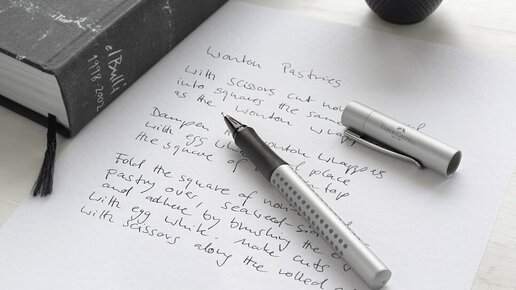 elBulli
1998-2002
Wonton Pastries
With scissors cut
into squares the same
as the wonton
Dampen wonton wrappers
with egg place
the square of top
Fold the square of
pastry over, seaweed
and adhere by brushing the
with egg white. Make cuts
with scissors along the rolled
FABER-CASTELL